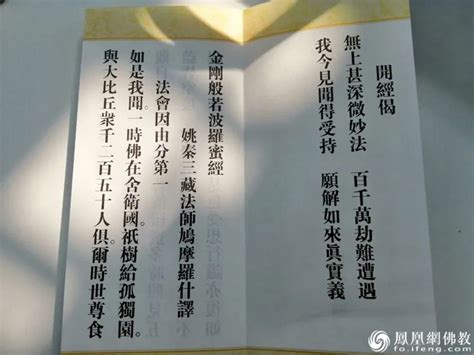 開經偈
無上甚深微妙法　百千萬劫難遭遇
我今見聞得受持　願解如來眞實義
金剛般若波羅蜜經
姚秦三藏法師鳩摩羅什譯
法會因由分第一
如是我聞。一時佛在舍衛國。祇樹給孤獨園。
與大比丘衆千二百五十人俱。爾時世尊食
鳳凰網佛教
fo.ifeng.com